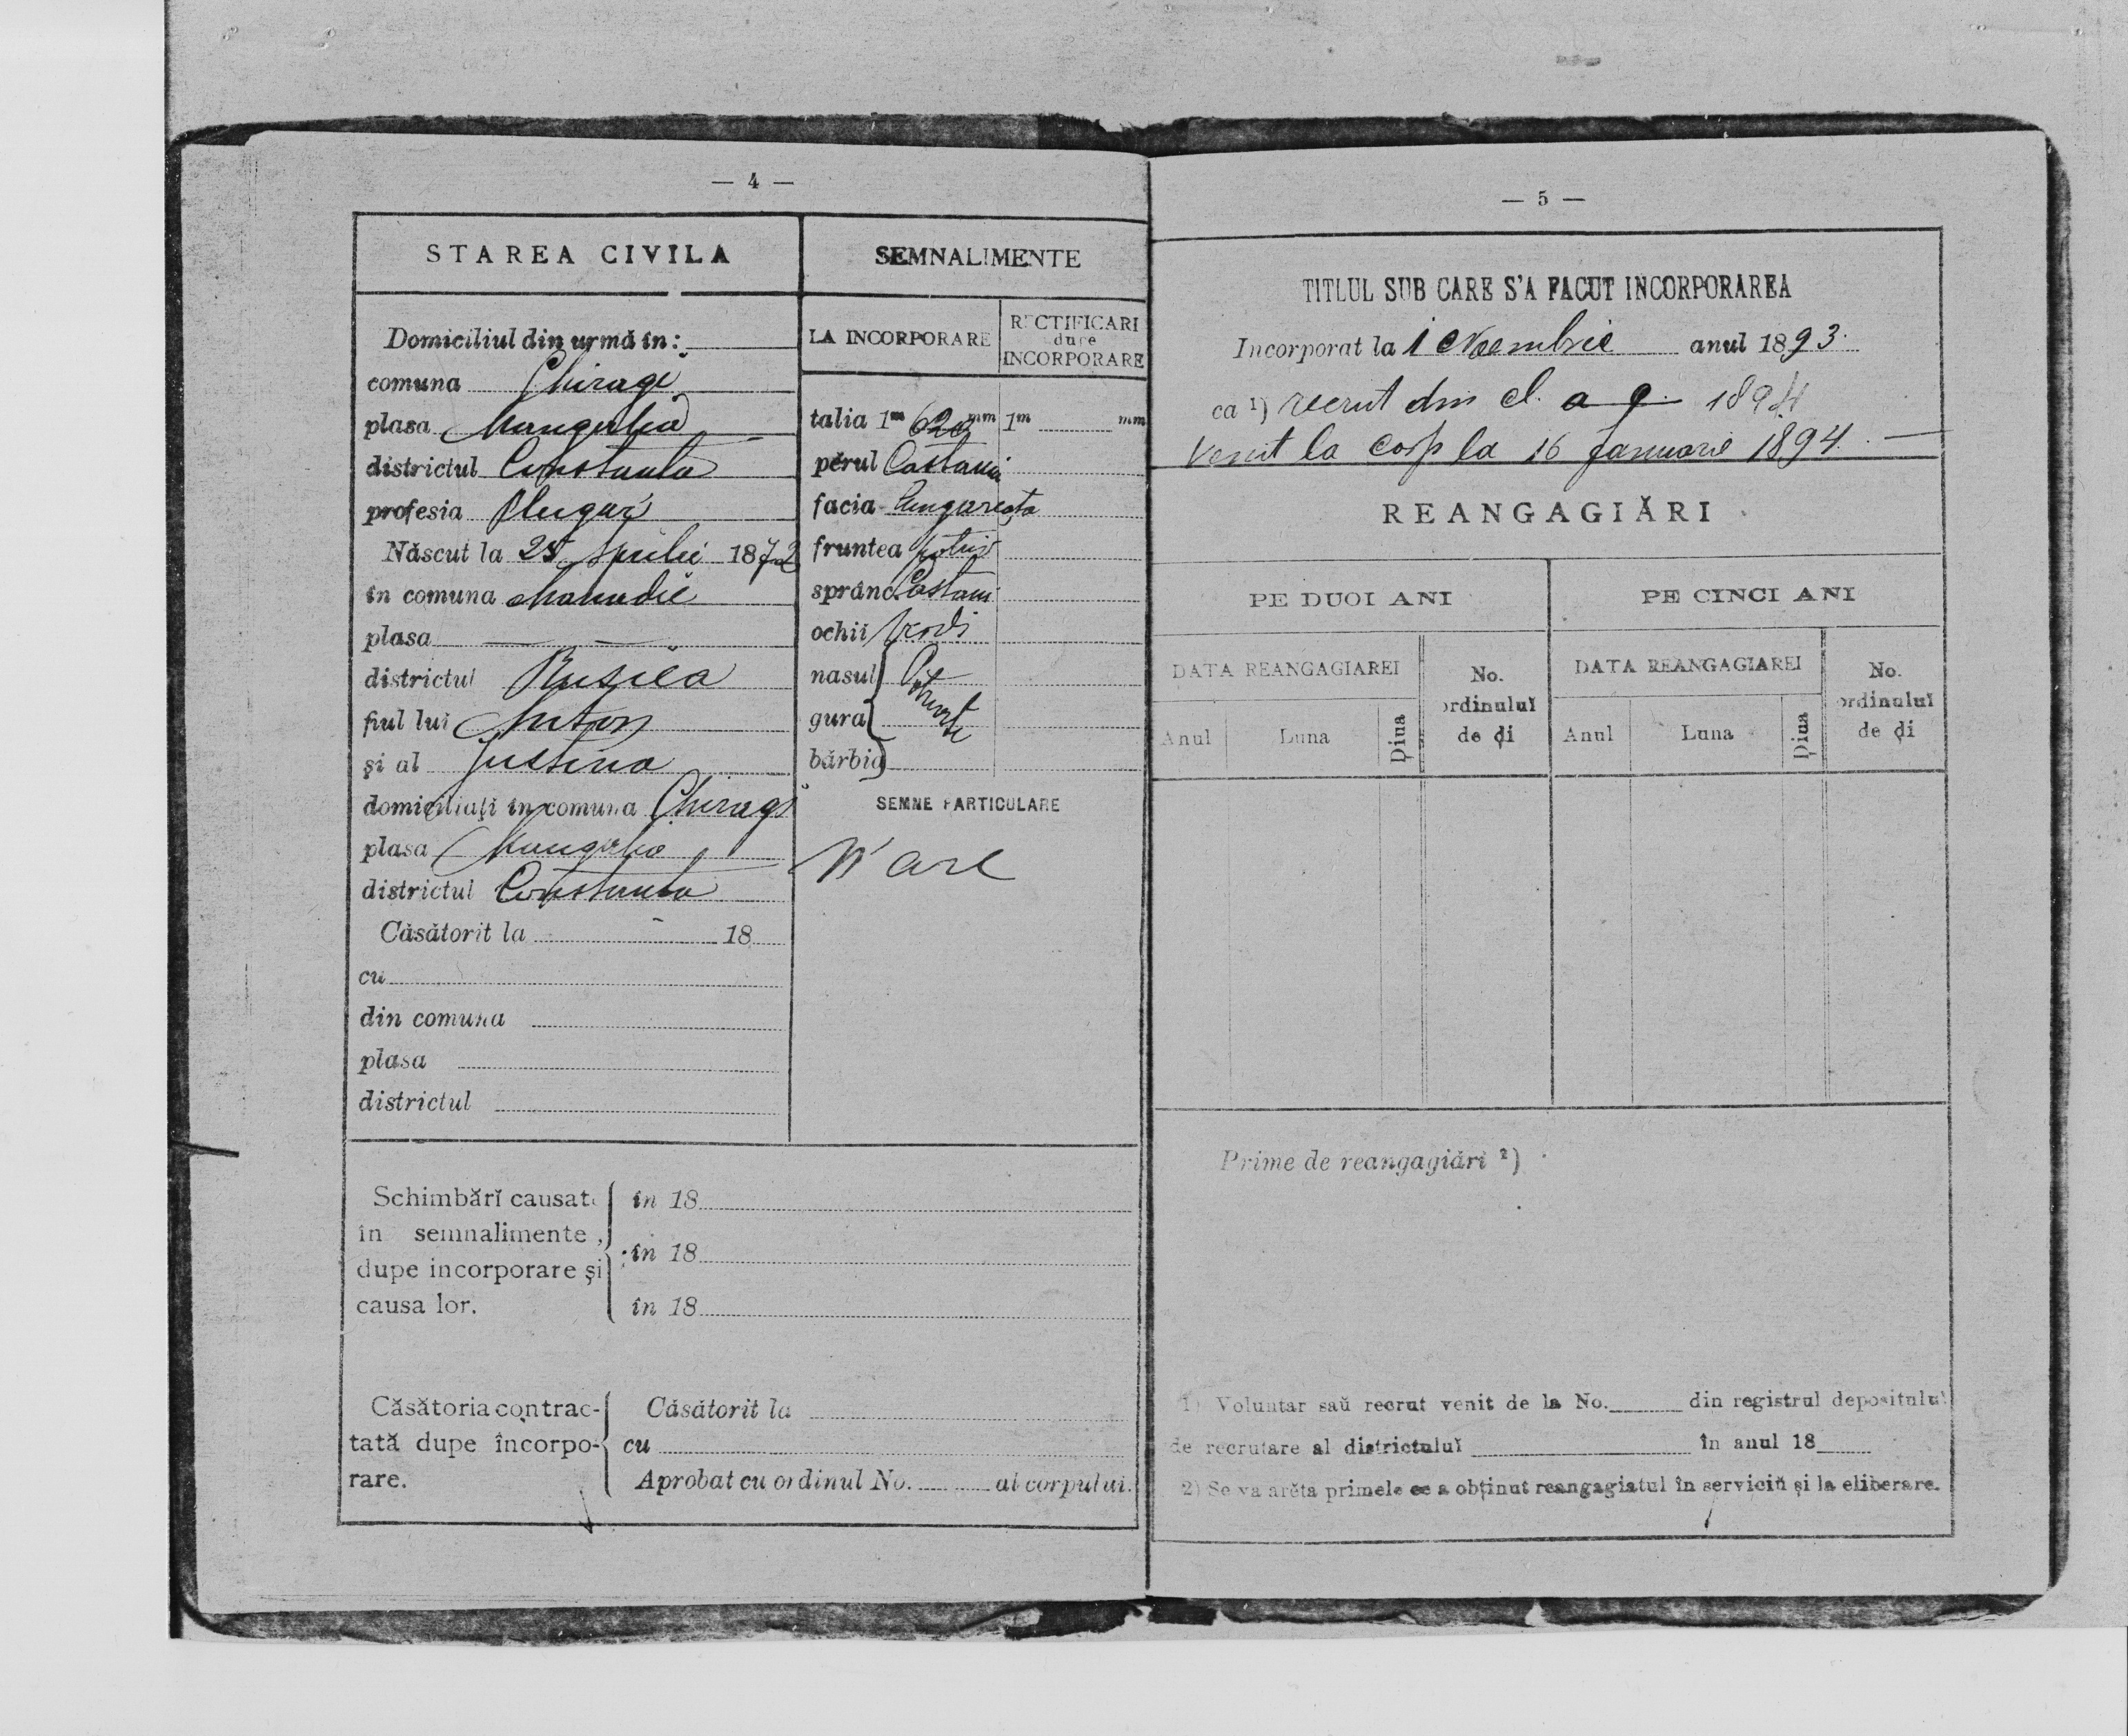 — 4 —
STAREA CIVILA
Domiciliul din urmă în:
comuna Chiragi
plasa Mangalia
districtul Constanta
profesia Plugar
Născut la 25 Aprilie 1872
în comuna
plasa — —
districtul Rusiea
fiul lui Anton
şi al Justina
domiciliaţi în comuna Chiragi
plasa Mangalia
districtul Constanta
Căsătorit la 18
cu
din comuna
plasa
districtul
SEMNALIMENTE
LA INCORPORARE
RECTIFICARI
dupe
INCORPORARE
talia 1m 620 mm 1m mm
pĕrul Castaniu
facia Lungareața
fruntea potriv
sprânc Castani
ochii
nasul Potrivite
gura
bărbia
SEMNE PARTICULARE
N'are
Schimbărĭ causate
în semnalimente,
dupe incorporare şi
causa lor.
în 18
în 18
în 18
Căsătoria contrac-
tată dupe încorpo-
rare.
Căsătorit la
cu
Aprobat cu ordinul No. al corpului.
— 5 —
TITLUL SUB CARE S'A FACUT INCORPORAREA
Incorporat la 1 Noembrie anul 1893.
ca 1) recrut din cl. a 9. 1894
venit la corp la 16 Januarie 1894. —
REANGAGIĂRI
PE DUOI ANI
PE CINCI ANI
DATA REANGAGIAREI
No.
ordinuluĭ
de ḑi
DATA REANGAGIAREI
No.
ordinuluĭ
de ḑi
Anul Luna Ḑiua
Anul Luna Ḑiua
Prime de reangagiări 2)
1) Voluntar saŭ recrut venit de la No. din registrul depositului
de recrutare al districtuluĭ în anul 18
2) Se va arĕta primele ce a obţinut reangagiatul în serviciŭ şi la eliberare.